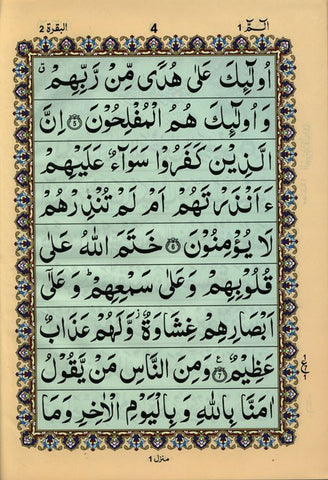 الٓمّٓ ١ 4 البقرة ٢
اُولٰٓئِكَ عَلٰى هُدًى مِّنْ رَّبِّهِمْ ۗ
وَاُولٰٓئِكَ هُمُ الْمُفْلِحُوْنَ ﴿٥﴾ اِنَّ
الَّذِيْنَ كَفَرُوْا سَوَآءٌ عَلَيْهِمْ
ءَاَنْذَرْتَهُمْ اَمْ لَمْ تُنْذِرْهُمْ
لَا يُؤْمِنُوْنَ ﴿٦﴾ خَتَمَ اللّٰهُ عَلٰى
قُلُوْبِهِمْ وَعَلٰى سَمْعِهِمْ ؕ وَعَلٰٓى
اَبْصَارِهِمْ غِشَاوَةٌ ز وَّلَهُمْ عَذَابٌ
عَظِيْمٌ ﴿٧﴾ ع وَمِنَ النَّاسِ مَنْ يَّقُوْلُ
اٰمَنَّا بِاللّٰهِ وَبِالْيَوْمِ الْاٰخِرِ وَمَا
منزل ١